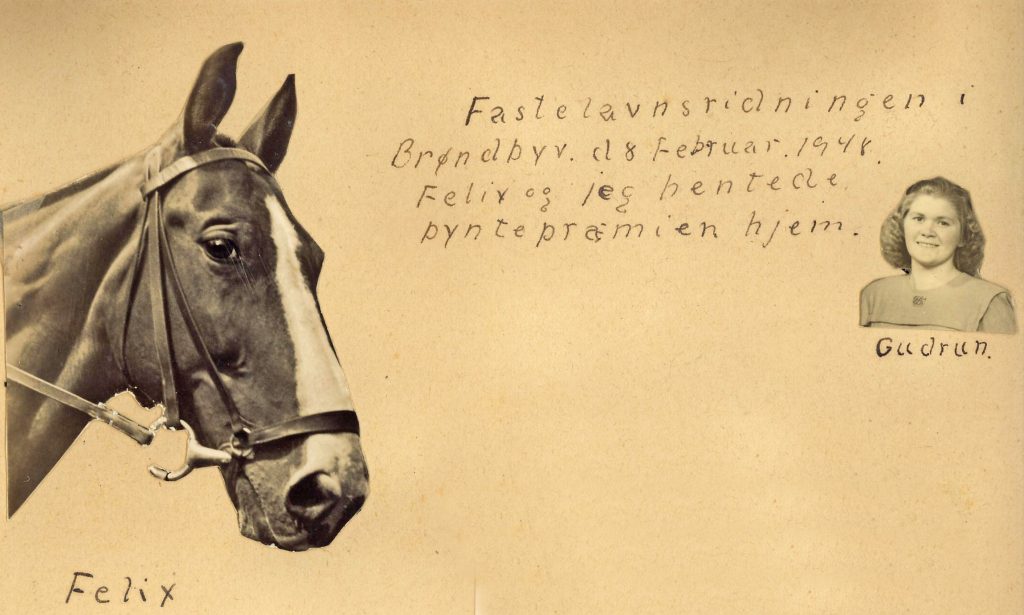 Fastelavnsridningen i
Brøndbyv. d 8 Februar. 1948.
Felix og jeg hentede
pyntepræmien hjem.
Gudrun.
Felix